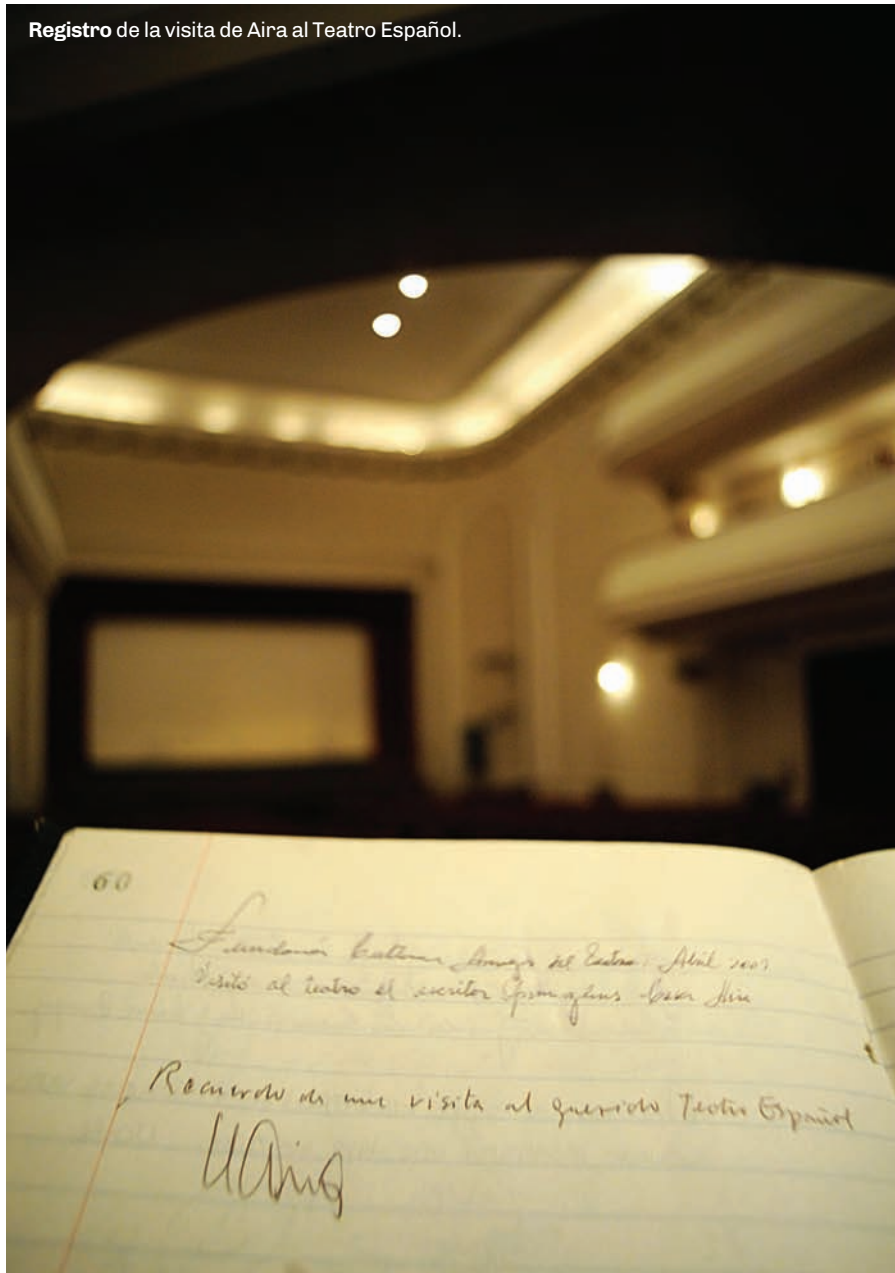 Registro de la visita de Aira al Teatro Español.
60
Fundación Amigos del Teatro. Abril
Visitó al teatro el escritor Cesar Aira
Recuerdo de una visita al querido Teatro Español